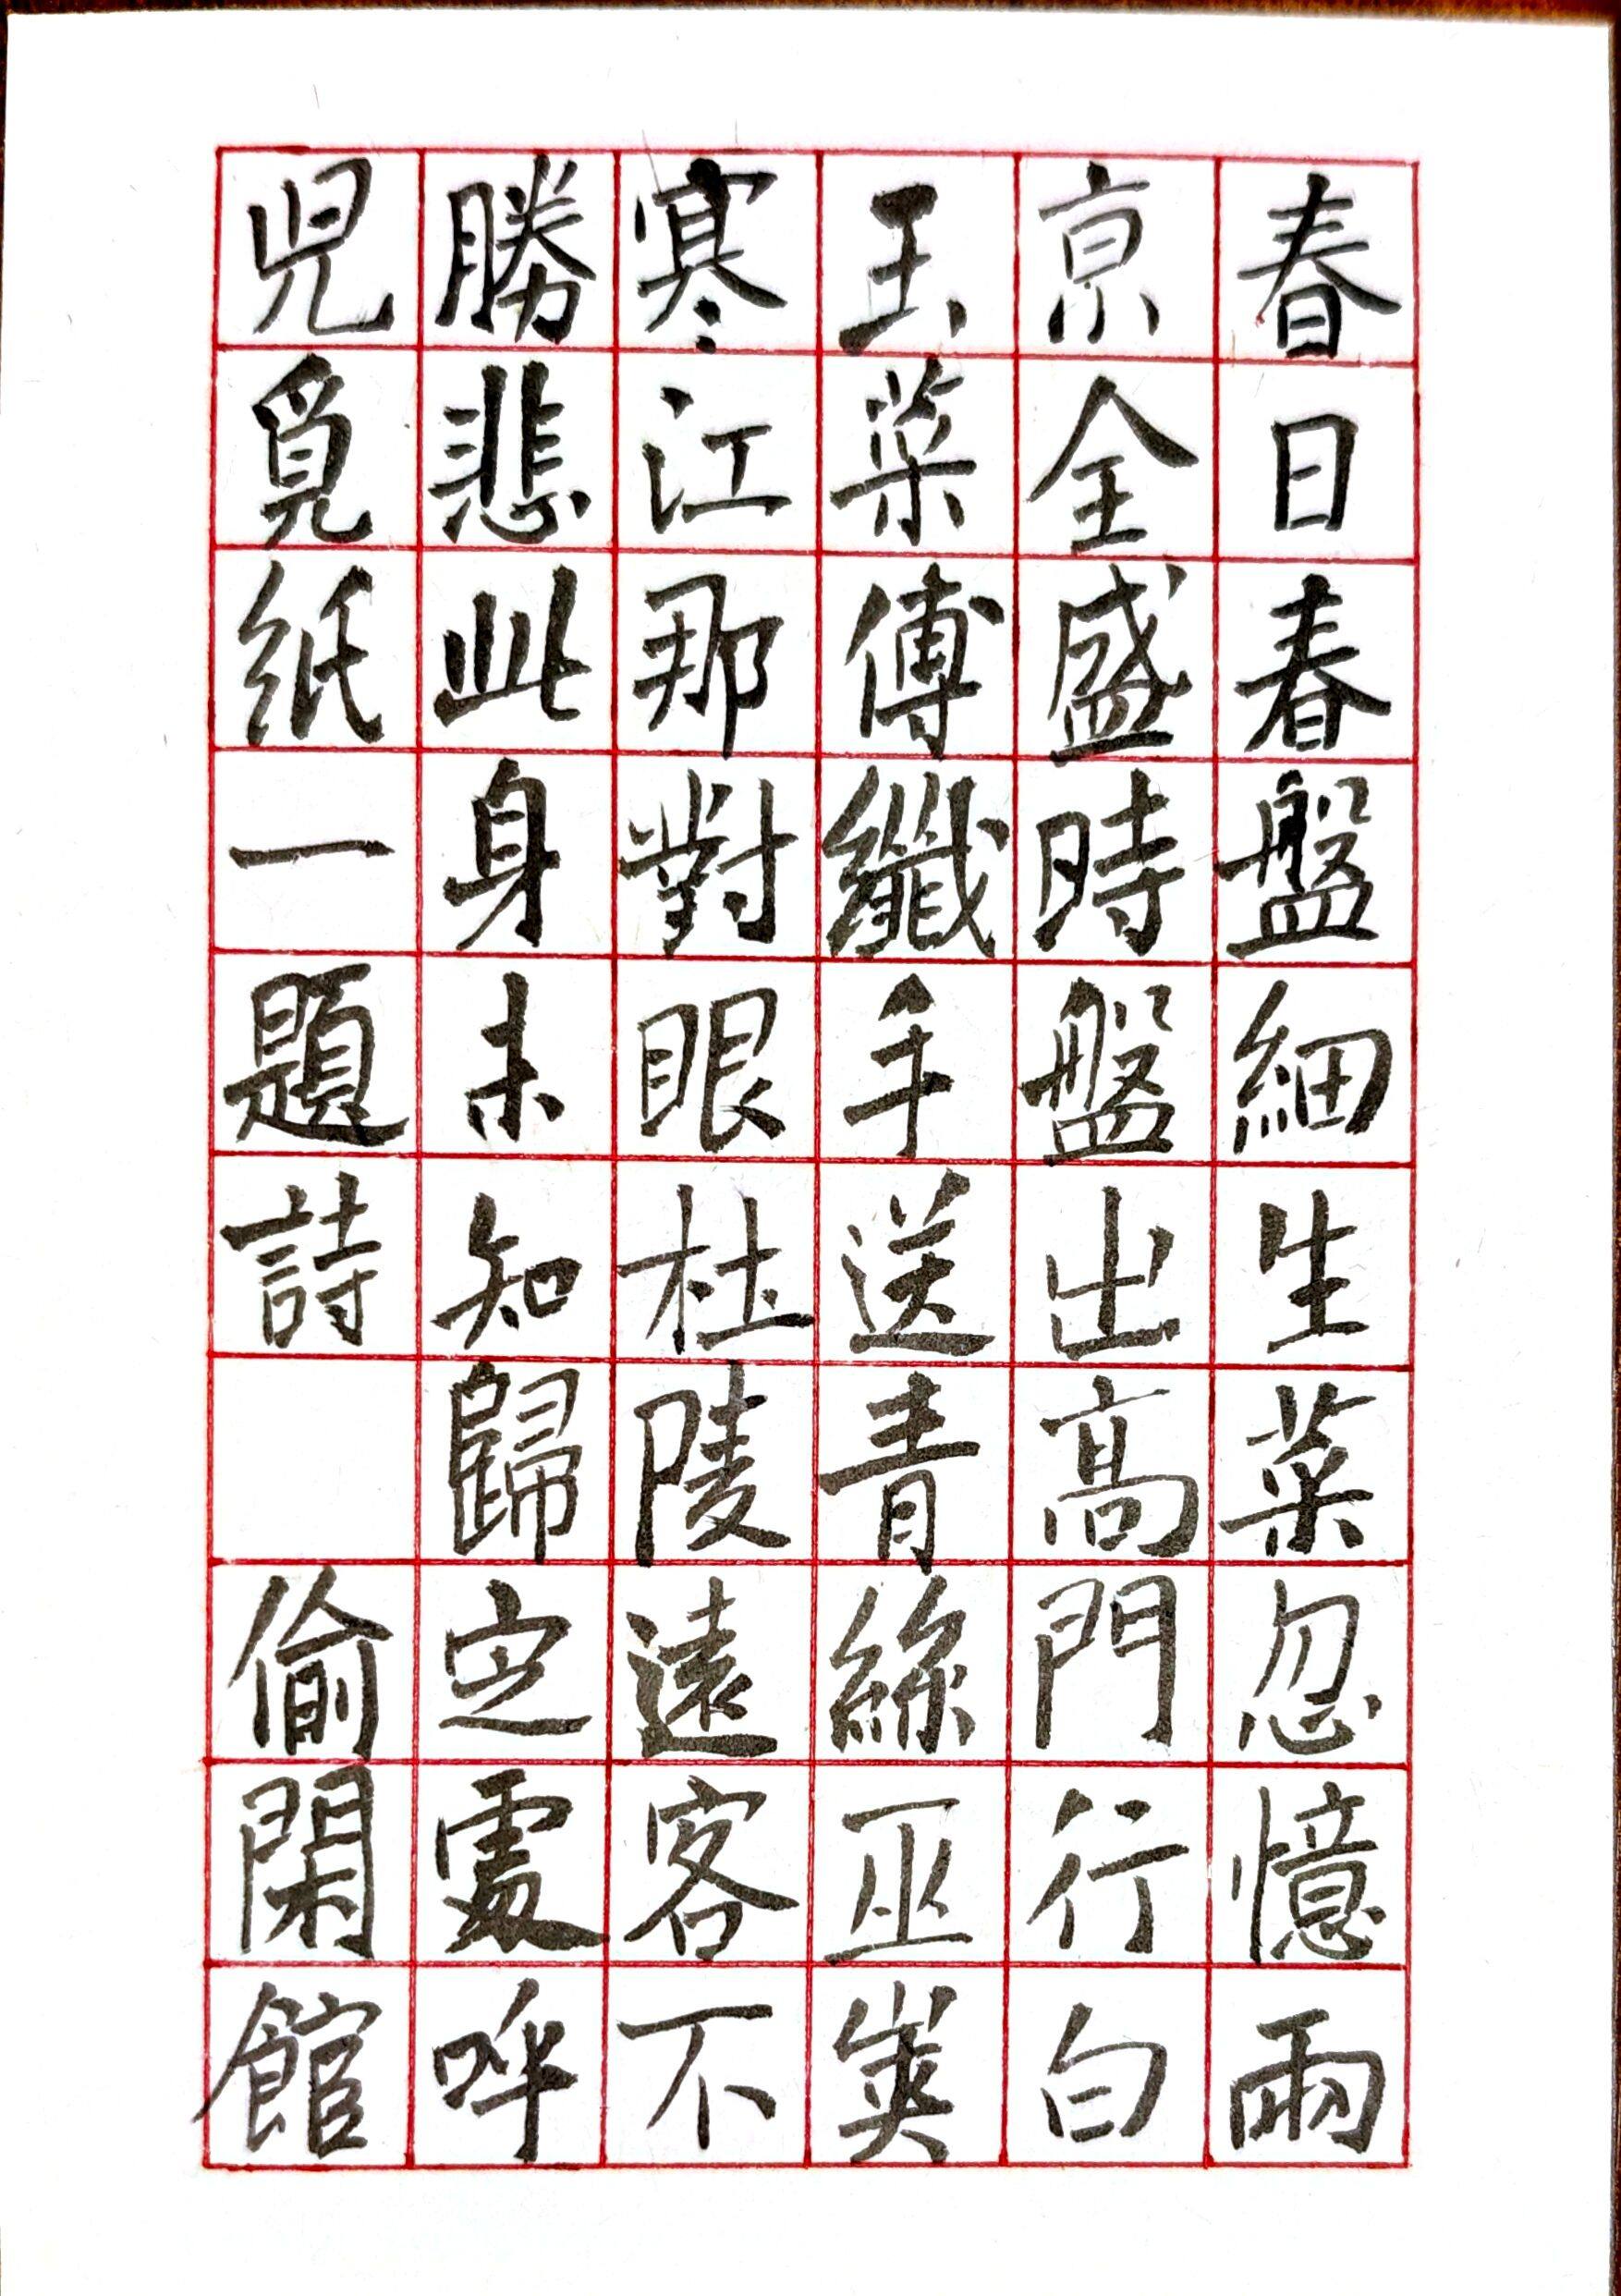 春日春盤細生菜忽憶兩
京全盛時盤出高門行白
玉菜傳纖手送青絲巫峽
寒江那對眼杜陵遠客不
勝悲此身未知歸定處呼
兒覓紙一題詩 偷閑館